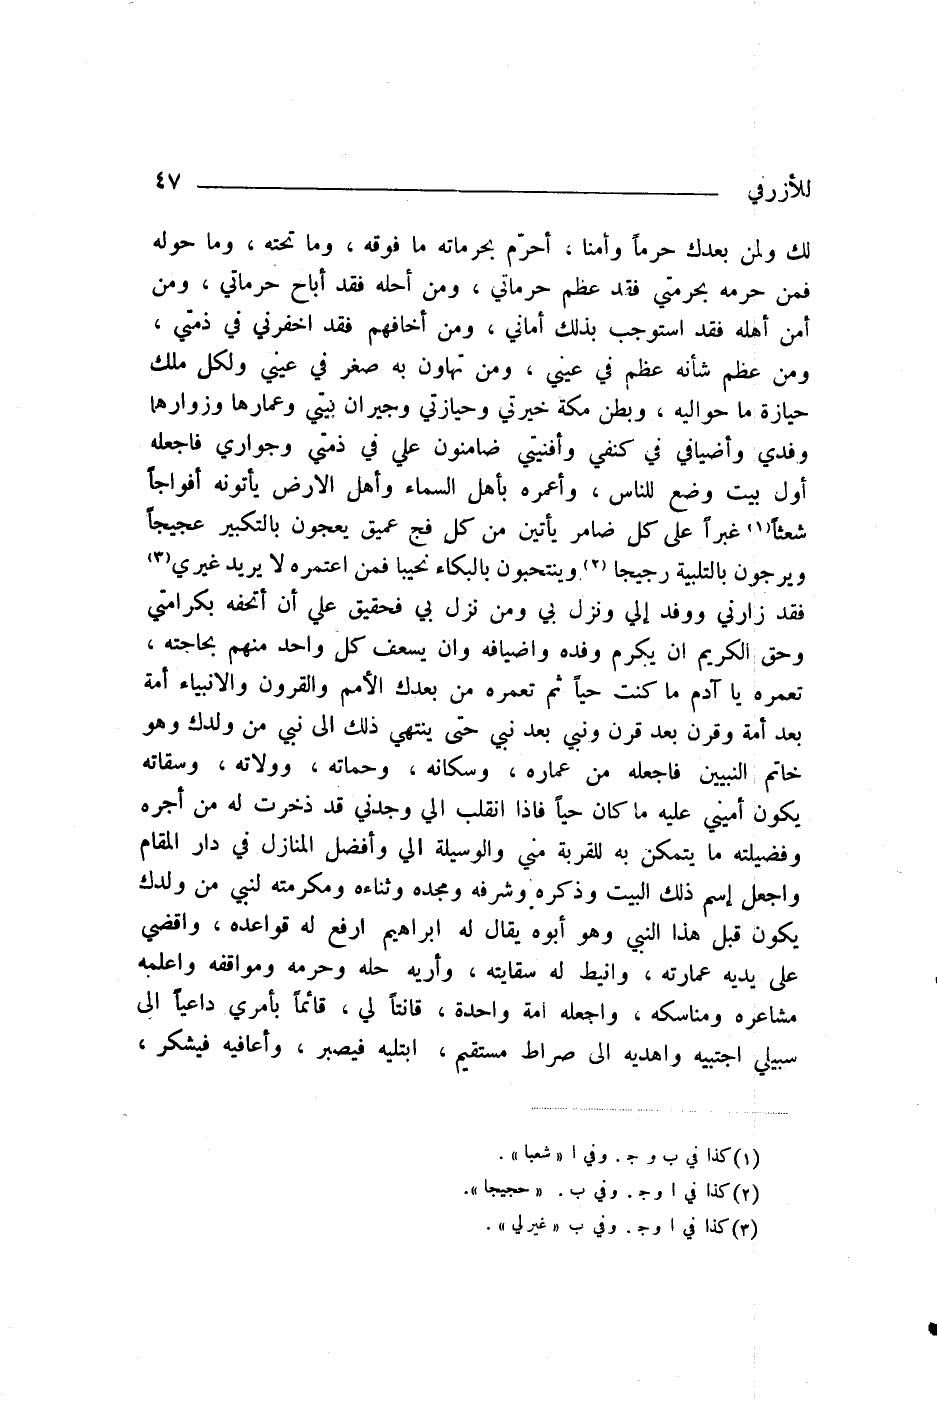 للأزرقي ٤٧
لك ولمن بعدك حرماً وأمنا ، أحرّم بحرماته ما فوقه ، وما تحته ، وما حوله
فمن حرمه بحرمتي فقد عظم حرماتي ، ومن أحله فقد أباح حرماتي ، ومن
أمن أهله فقد استوجب بذلك أماني ، ومن أخافهم فقد اخفرني في ذمتي ،
ومن عظم شأنه عظم في عيني ، ومن تهاون به صغر في عيني ولكل ملك
حيازة ما حواليه ، وبطن مكة خيرتي وحيازتي وجيران بيتي وعمارها وزوارها
وفدي وأضيافي في كنفي وأفنيتي ضامنون علي في ذمتي وجواري فاجعله
أول بيت وضع للناس ، وأعمره بأهل السماء وأهل الارض يأتونه أفواجاً
شعثاً(١) غبراً على كل ضامر يأتين من كل فج عميق يعجون بالتكبير عجيجاً
ويرجون بالتلبية رجيجا (٢) وينتحبون بالبكاء نحيبا فمن اعتمره لا يريد غيري(٣)
فقد زارني ووفد إلي ونزل بي ومن نزل بي فحقيق علي أن أتحفه بكرامتي
وحق الكريم ان يكرم وفده واضيافه وان يسعف كل واحد منهم بحاجته ،
تعمره يا آدم ما كنت حياً ثم تعمره من بعدك الأمم والقرون والانبياء أمة
بعد أمة وقرن بعد قرن ونبي بعد نبي حتى ينتهي ذلك الى نبي من ولدك وهو
خاتم النبيين فاجعله من عماره ، وسكانه ، وحماته ، وولاته ، وسقاته
يكون أميني عليه ما كان حياً فاذا انقلب الي وجدني قد ذخرت له من أجره
وفضيلته ما يتمكن به للقربة مني والوسيلة الي وأفضل المنازل في دار المقام
واجعل إسم ذلك البيت وذكره وشرفه ومجده وثناءه ومكرمته لنبي من ولدك
يكون قبل هذا النبي وهو أبوه يقال له ابراهيم ارفع له قواعده ، واقضي
على يديه عمارته ، وانيط له سقايته ، وأريه حله وحرمه ومواقفه واعلمه
مشاعره ومناسكه ، واجعله امة واحدة ، قانتاً لي ، قائماً بأمري داعياً الى
سبيلي اجتبيه واهديه الى صراط مستقيم ، ابتليه فيصبر ، وأعافيه فيشكر ،
(١) كذا في ب و ج . وفي ا « شعبا » .
(٢) كذا في ا وج . وفي ب . « حجيجا ».
(٣) كذا في ا وج . وفي ب « غيرلي » .